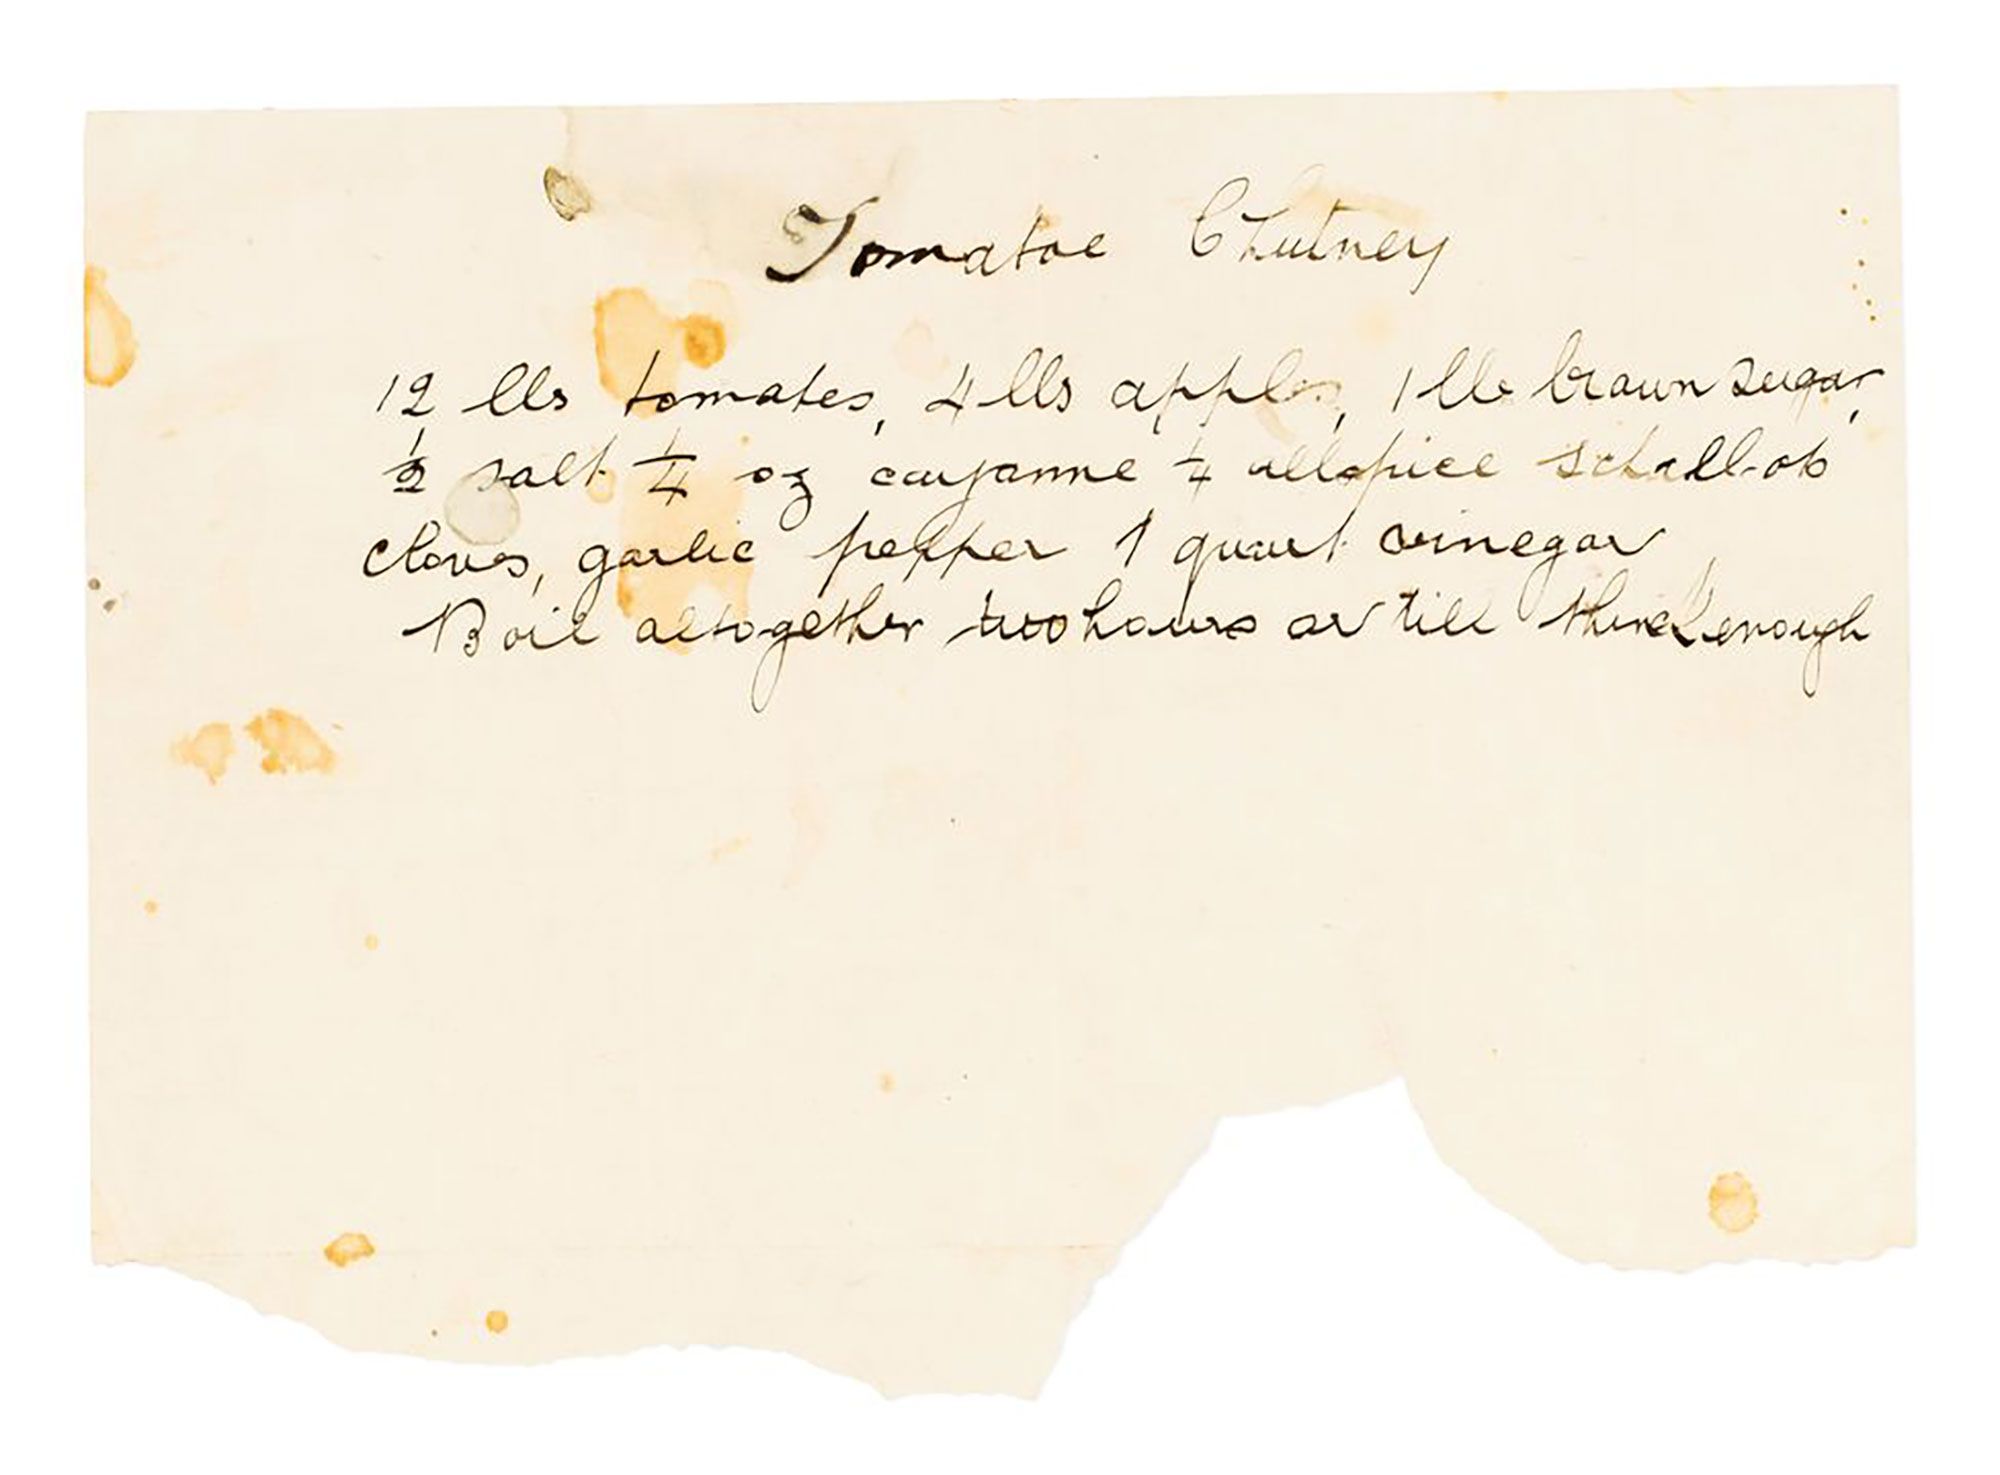 Tomatoe Chutney
12 lbs tomates, 4 lbs apples, 1 lb brown sugar,
1/2 salt 1/4 oz cayanne 1/4 allspice schallots
cloves, garlic pepper 1 quart vinegar
Boil altogether two hours or till thick enough